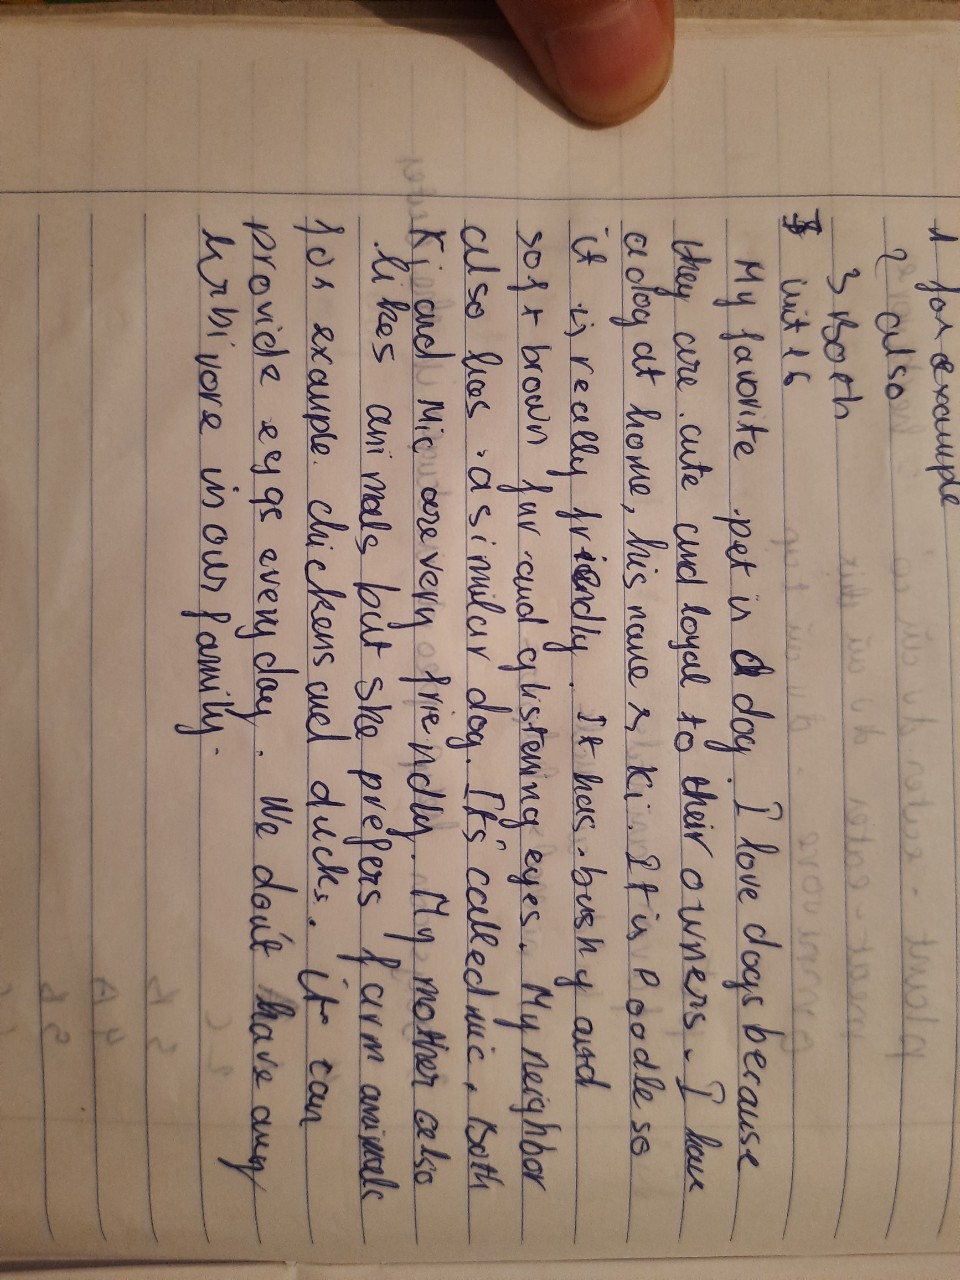 1 for example
2 also
3 Both
unit 6
My favorite pet is a dog. I love dogs because
they are cute and loyal to their owners. I have
a dog at home, his name is Ki. It is Poodle so
it is really friendly. It has bushy and
soft brown fur and glistening eyes. My neighbor
also has a similar dog. It's called mic, Both
Ki and Mic are very friendly. My mother also
likes animals but she prefers farm animals
for example. chickens and ducks. it can
provide eggs every day. We don't have any
hrbivore in our family.